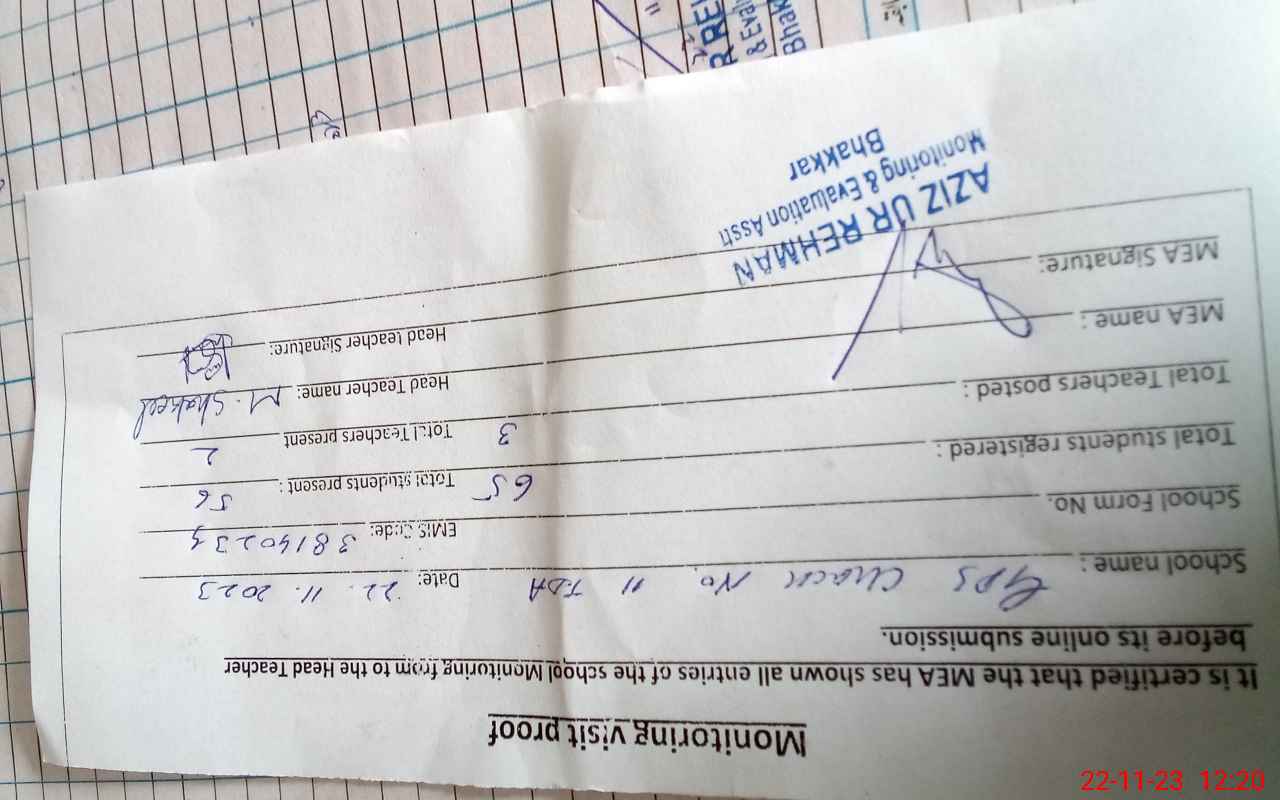 Monitoring visit proof
It is certified that the MEA has shown all entries of the school Monitoring from to the Head Teacher
before its online submission.
School name : GPS Chack No. 11 TDA Date: 22. 11. 2023
School Form No. EMIS Code:
Total students registered : 65 Total students present : 56
Total Teachers posted : 3 Total Teachers present 2
MEA name : Head Teacher name: M. Shakeel
MEA Signature: Head teacher Signature:
AZIZ UR REHMAN
Monitoring & Evaluation Asstt
Bhakkar
22-11-23 12:20